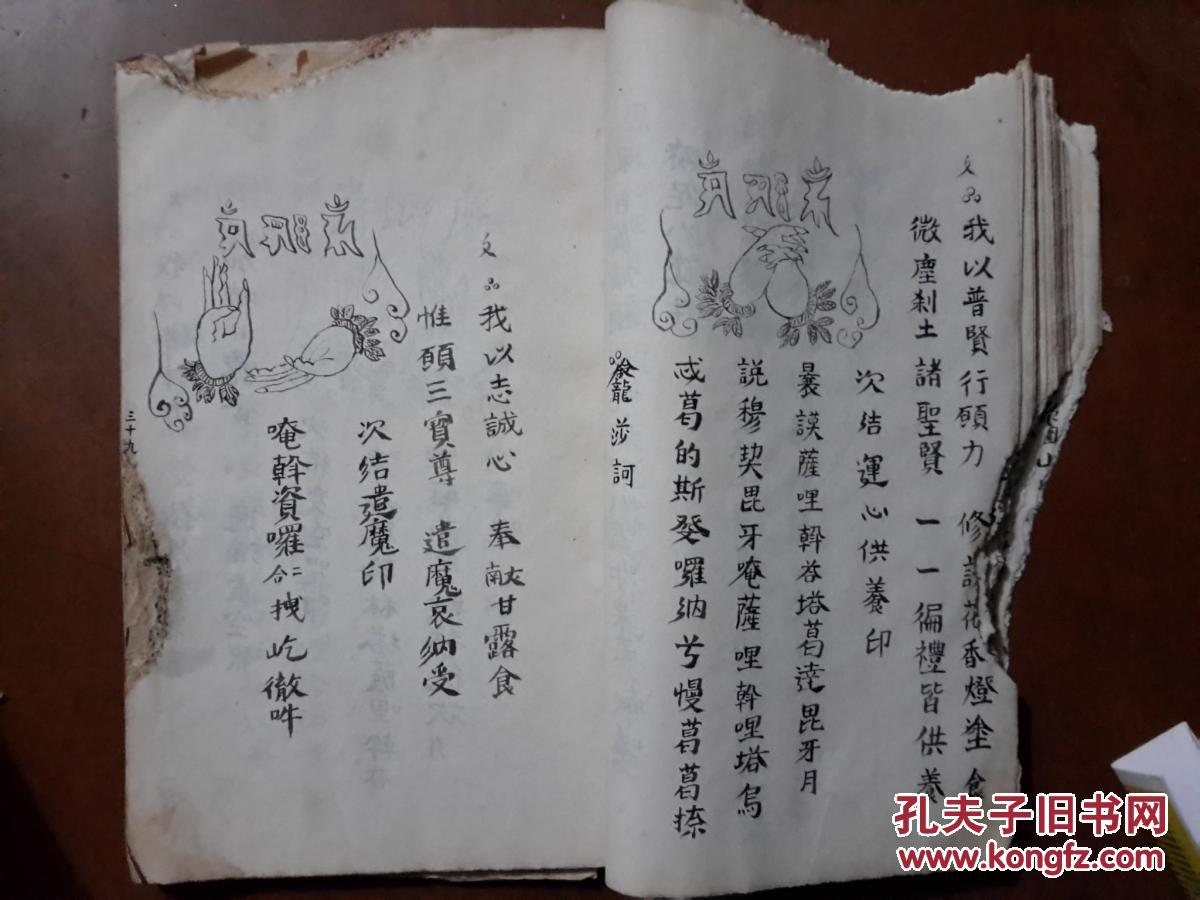 我以普賢行願力 修設花香燈塗食
微塵剎土諸聖賢 一一徧禮皆供養
次结運心供養印
曩謨薩哩斡荅塔葛達毘牙月
説穆契毘牙唵薩哩斡哩塔烏
忒葛的斯癹囉纳兮慢葛葛捺
龍莎訶
我以志誠心 奉献甘露食
惟願三寶尊 遣魔哀纳受
次结遣魔印
唵斡資囉合二拽屹徹吽
三十九
孔夫子旧书网
www.kongfz.com